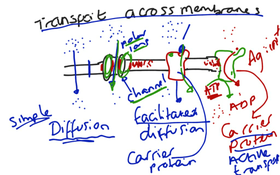 Transport across membranes
polar
ions
Against
channel
ATP
ADP
Simple
Diffusion
facilitated
diffusion
Carrier
protein
Carrier
protein
Active
transport